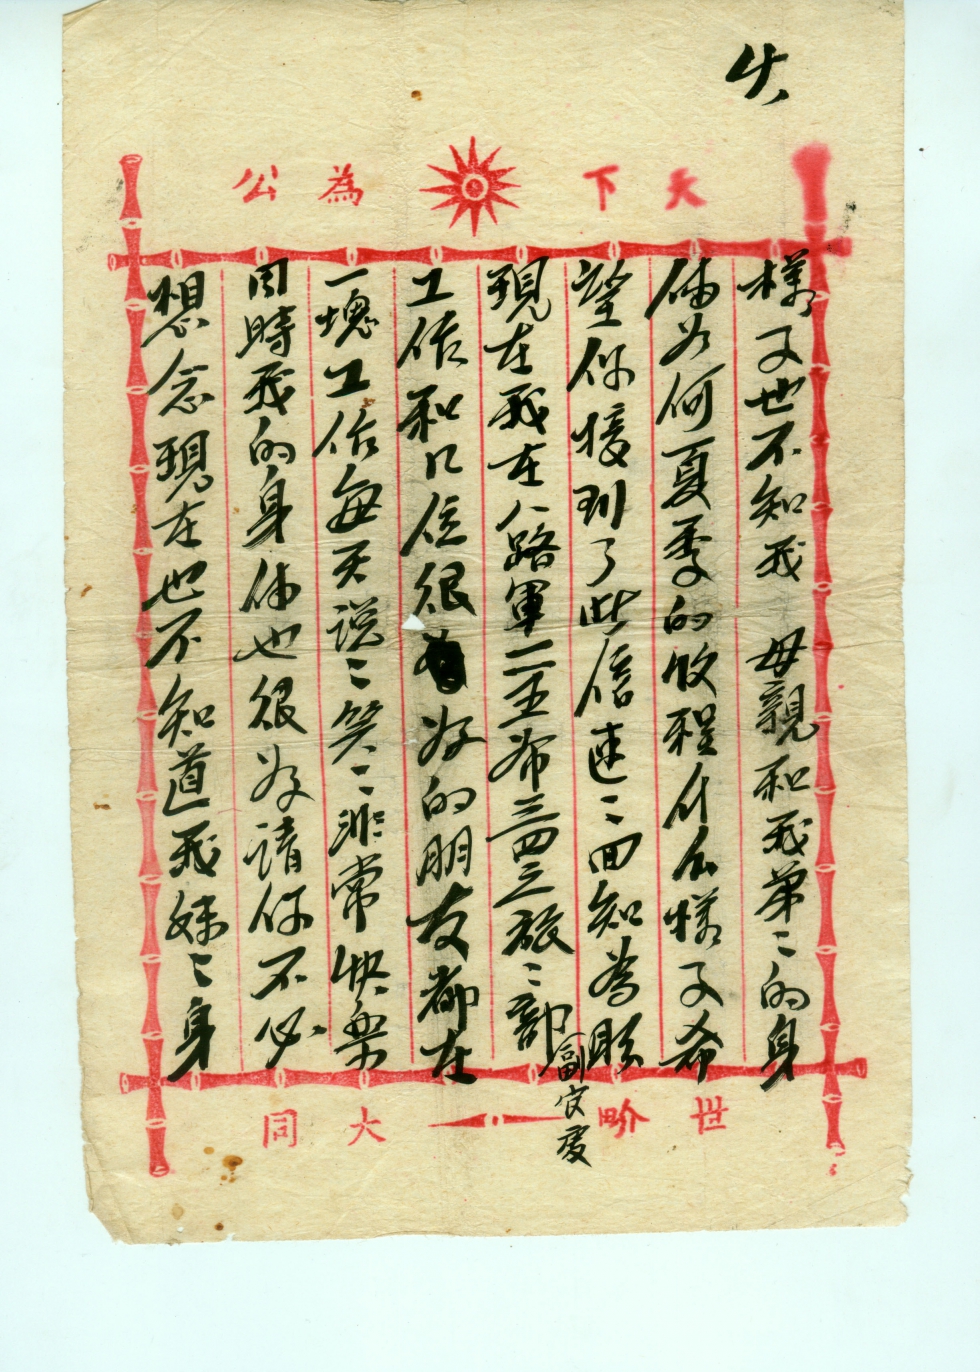 天下為公
樣子也不知我 母親和我弟〻的身
体为何夏季的收程什么樣子希
望你接到了此信速〻回知為盼
現在我在八路軍一二五师三四三旅〻部副官處
工作和几位很好的朋友都在
一塊工作每天說〻笑〻非常快樂
同時我的身体也很好請你不必
想念現在也不知道我妹〻身
世界大同